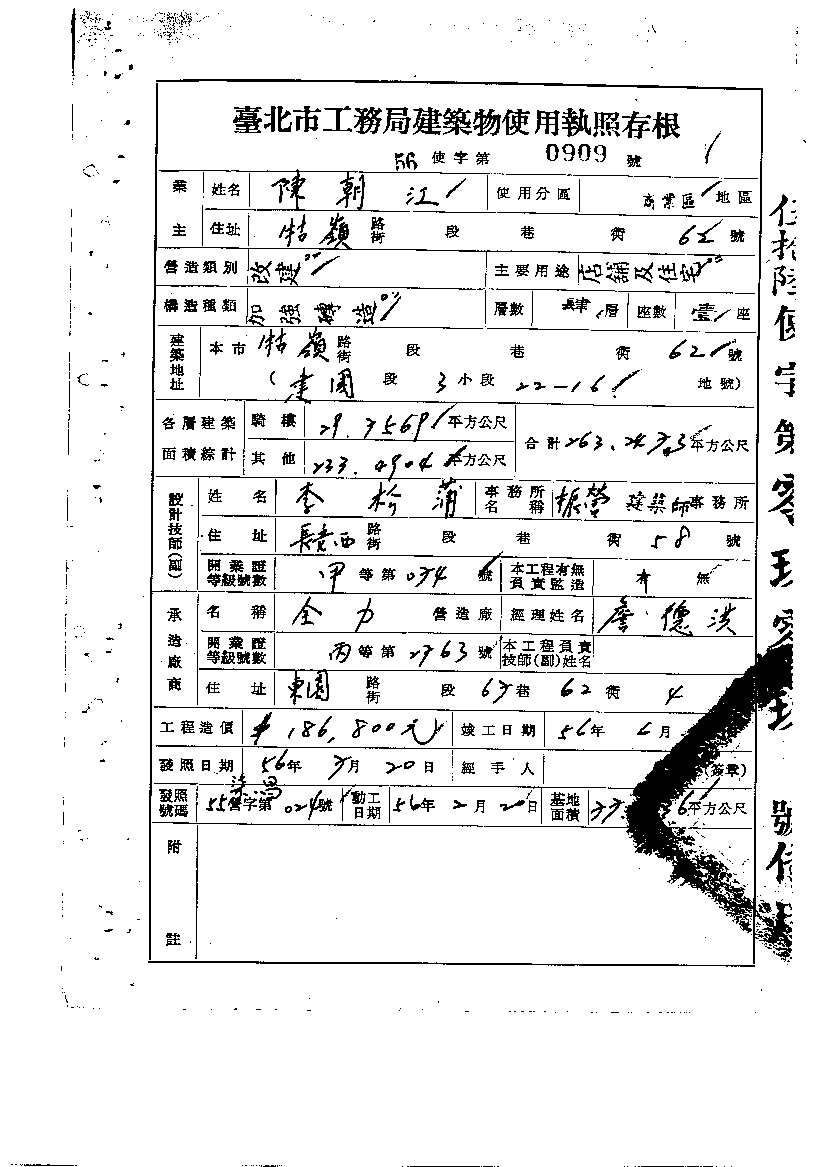 臺北市工務局建築物使用執照存根
56 使字第 0909 號
業主 姓名 陳朝江 使用分區 商業區 地區
住址 牯嶺 路街 段 巷 衖 62 號
營造類別 改建 主要用途 店舖及住宅
構造種類 加強磚造 層數 肆 層 座數 壹 座
建築地址 本市 牯嶺 路街 段 巷 衖 62 號
( 建國 段 3 小段 22-16 地號)
各層建築面積綜計 騎樓 29.7569 平方公尺 合計 263.2473 平方公尺
其他 233.4904 平方公尺
設計技師(副) 姓名 李松蒲 事務所名稱 振營 建築師事務所
住址 長春西 路街 段 巷 衖 58 號
開業證等級號數 甲 等第 074 號 本工程有無負責監造 有 無
承造廠商 名稱 全力 營造廠 經理姓名 詹德洪
開業證等級號數 丙 等第 2763 號 本工程負責技師(副)姓名
住址 東園 路街 段 67 巷 62 衖 4
工程造價 $186,800元 竣工日期 56年 6月
發照日期 56年 7月 20日 經手人 (簽章)
發照號碼 55營字第 024號 動工日期 56年 2月 20日 基地面積 平方公尺
附註
伍拾陸使字第零玖零玖號